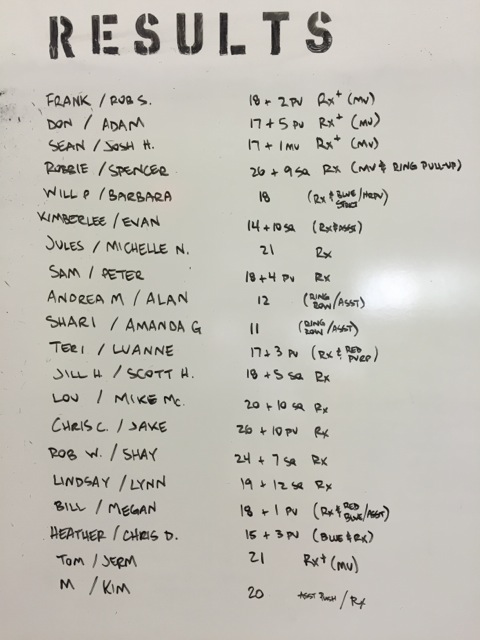 RESULTS
FRANK / ROB S. 18 + 2 PU Rx+ (MU)
DON / ADAM 17 + 5 PU Rx+ (MU)
SEAN / JOSH H. 17 + 1 MU Rx+ (MU)
ROBBIE / SPENCER 26 + 9 SQ Rx (MU & RING PULL-UP)
WILL P / BARBARA 18 (Rx & BLUE / HRPU)
KIMBERLEE / EVAN 14 + 10 SQ (Rx & ASST)
JULES / MICHELLE N. 21 Rx
SAM / PETER 18 + 4 PU Rx
ANDREA M / ALAN 12 (RING ROW / ASST)
SHARI / AMANDA G 11 (RING ROW / ASST)
TERI / LUANNE 17 + 3 PU (Rx & RED PURP)
JILL H. / SCOTT H. 18 + 5 SQ Rx
LOU / MIKE MC. 20 + 10 SQ Rx
CHRIS C. / JAKE 26 + 10 PU Rx
ROB W. / SHAY 24 + 7 SQ Rx
LINDSAY / LYNN 19 + 12 SQ Rx
BILL / MEGAN 18 + 1 PU (Rx & RED BLUE / ASST)
HEATHER / CHRIS D. 15 + 3 PU (BLUE & Rx)
TOM / JERM 21 Rx+ (MU)
M / KIM 20 ASST PUSH / Rx